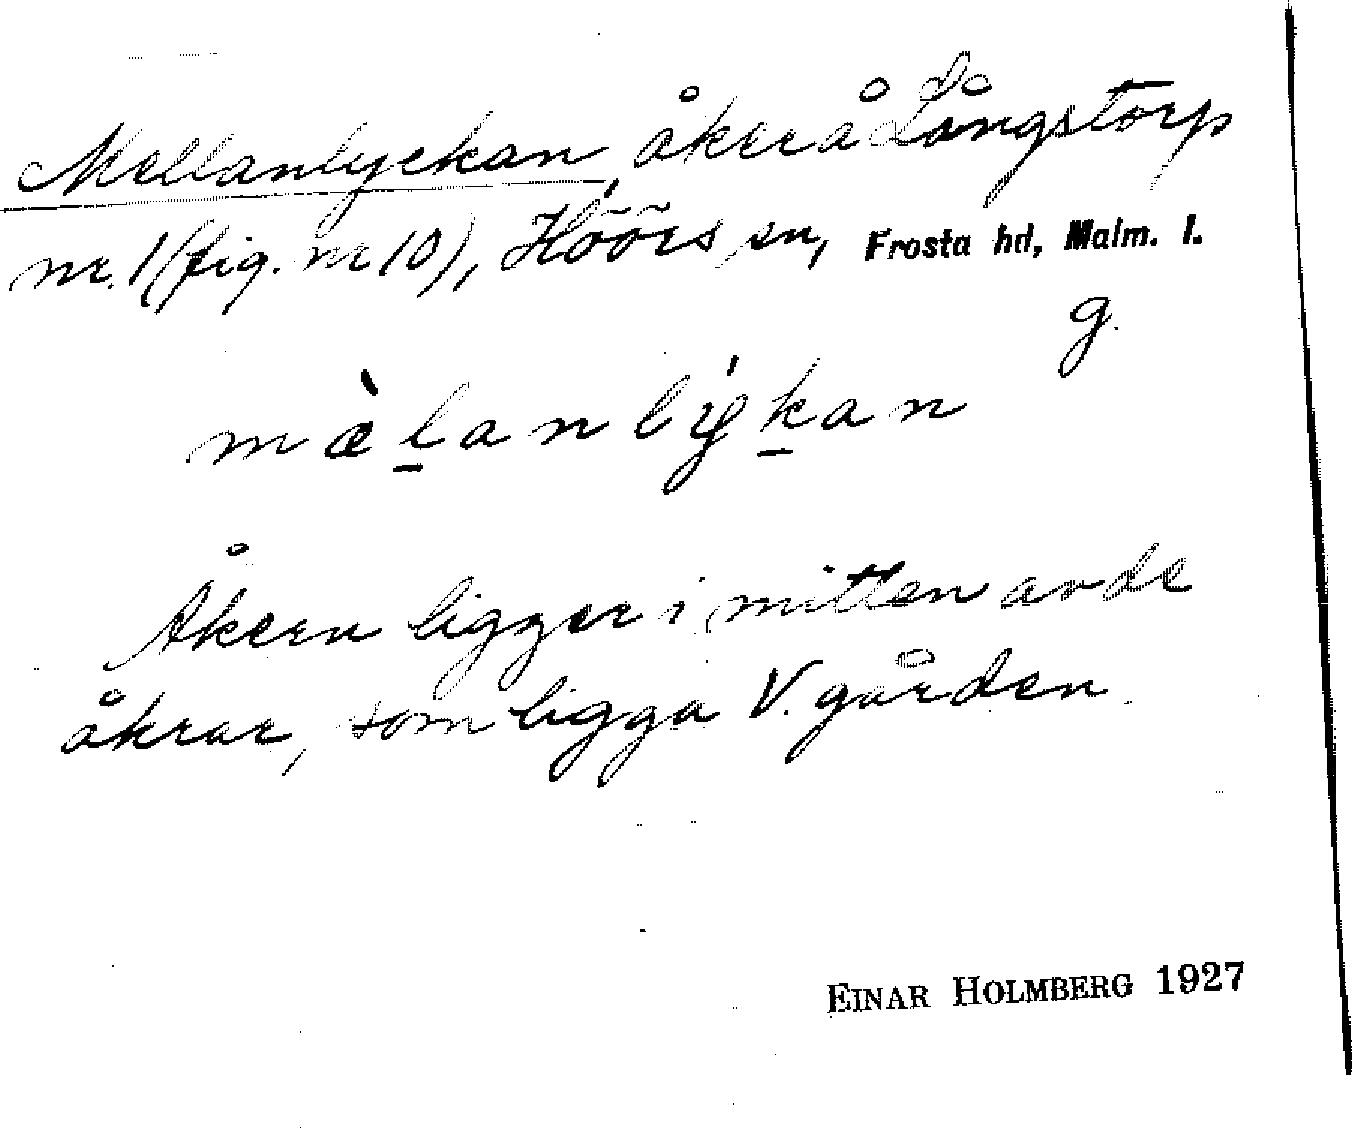 Mellanlyckan, åker å Långstorp
nr. 1 (fig. nr 10), Höörs sn, Frosta hd, Malm. l.
g.
mæ̀l̠anlýk̠an
Åkern ligger i mitten av de
åkrar, som ligga V. gården.
EINAR HOLMBERG 1927